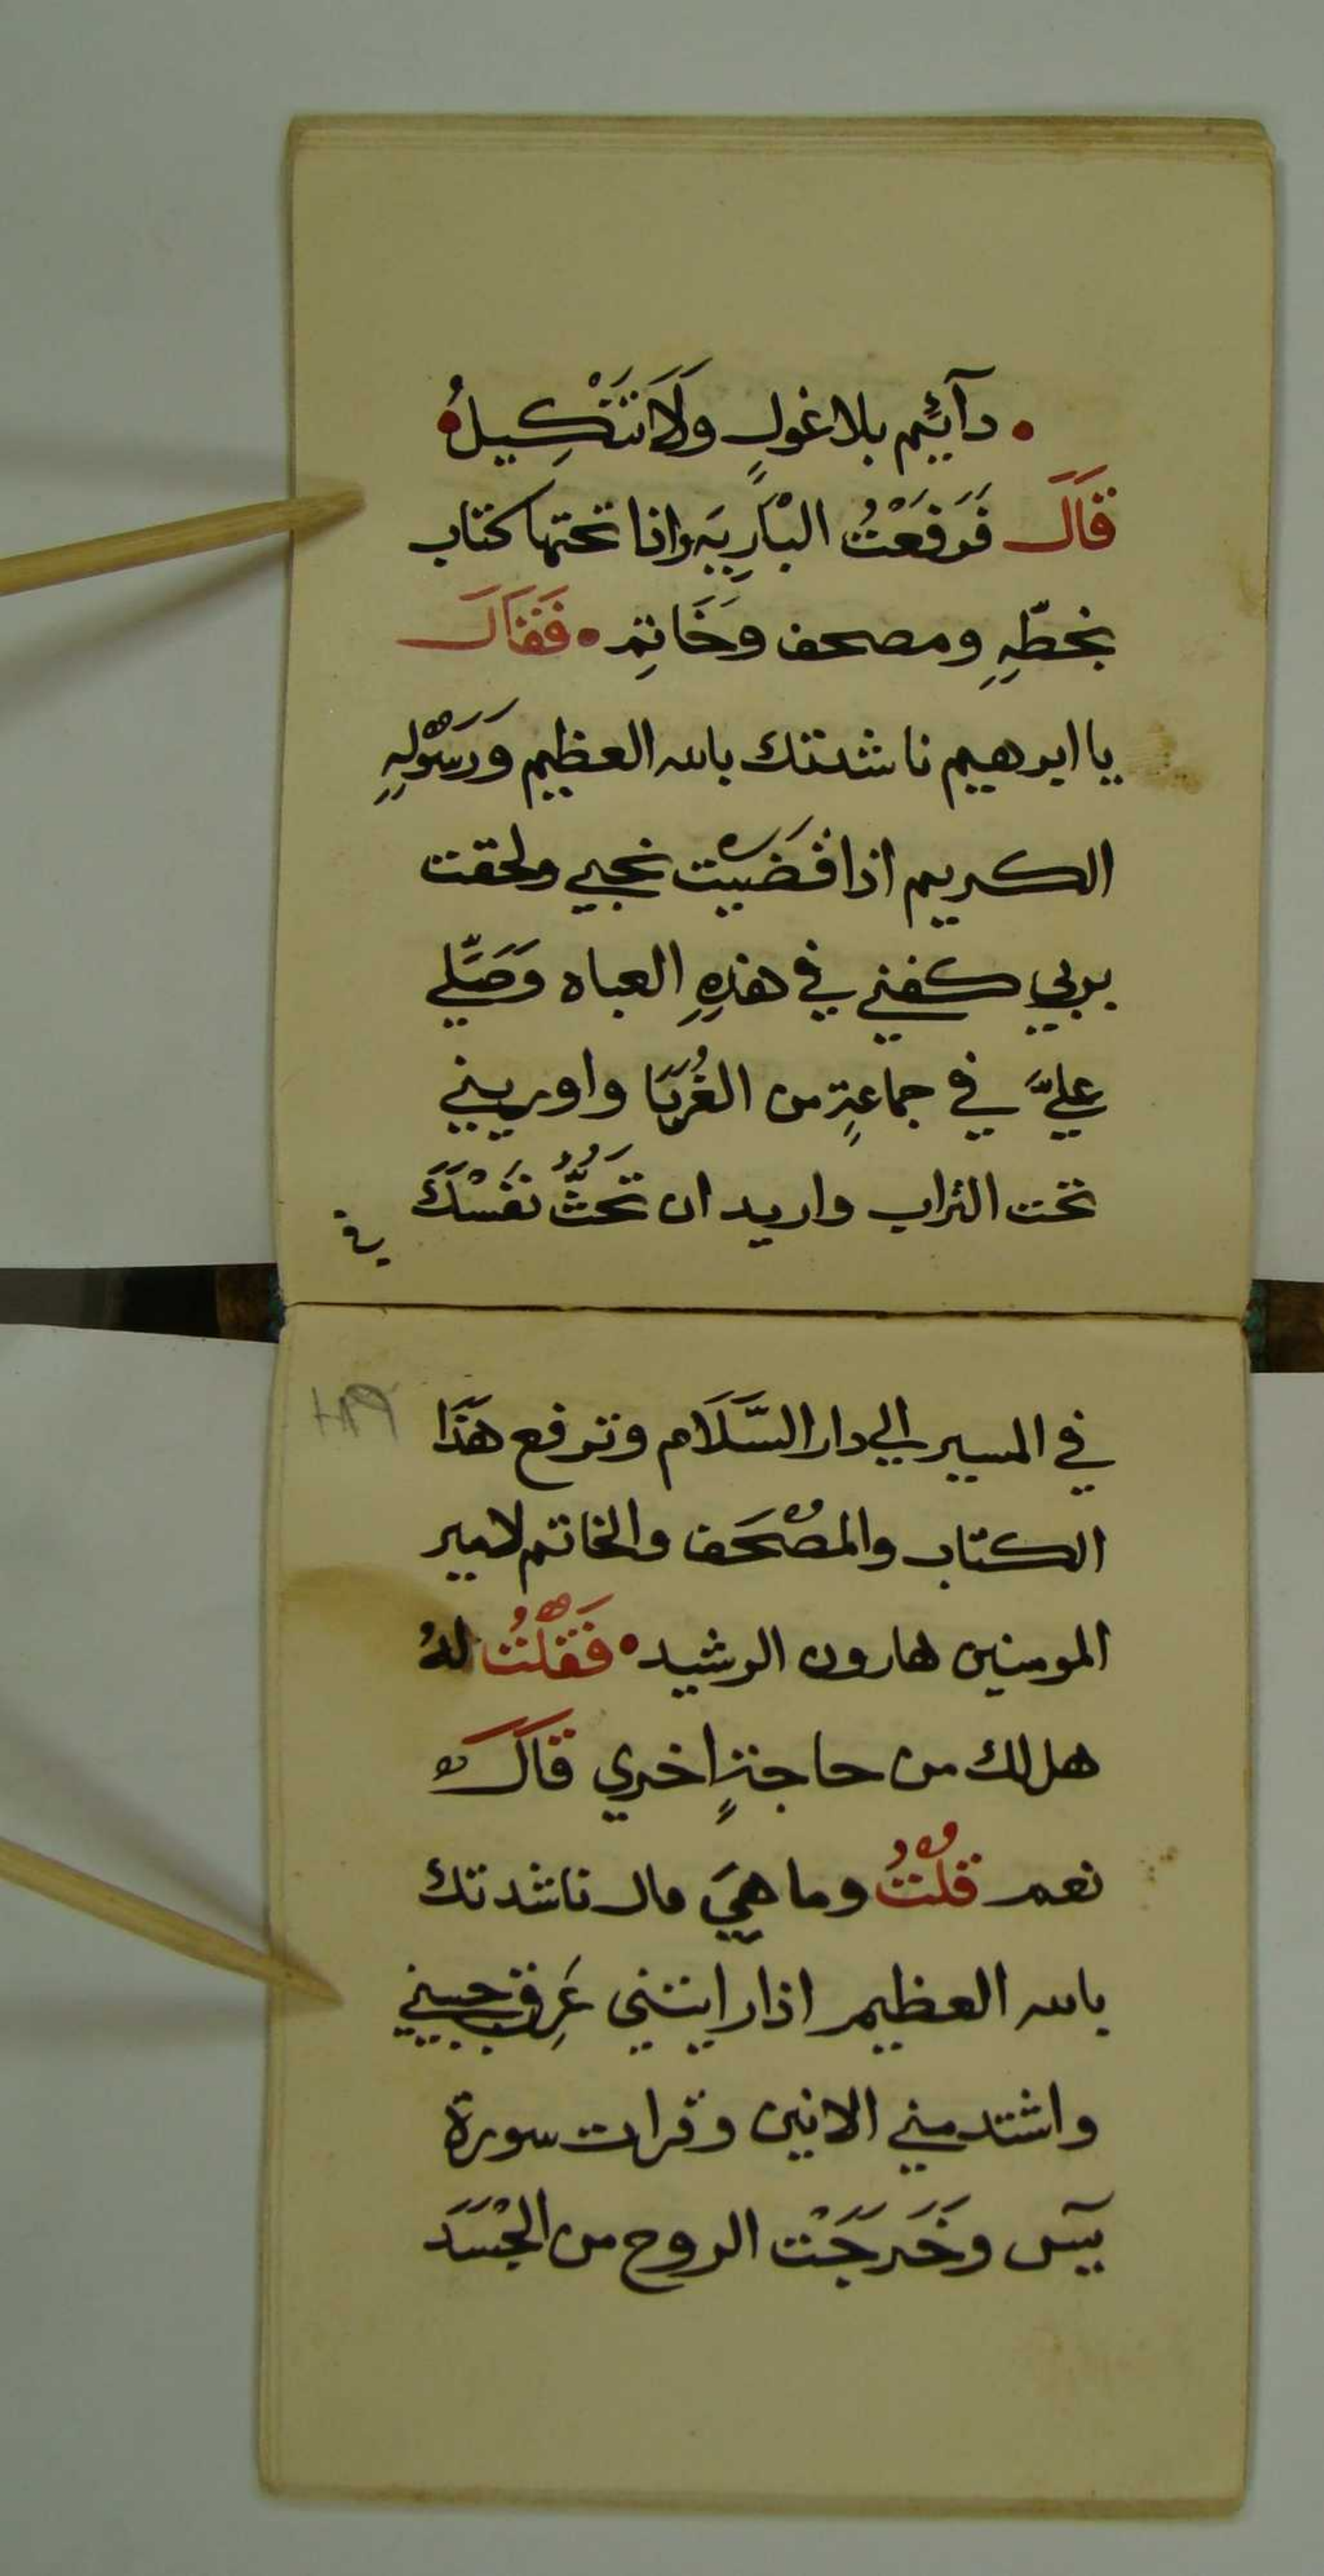 • دآئيم بلا غولٍ وَلَا تَنْكِيلُ•
قَالَ فَرَفَعْتُ البْارِيَه واذا تحتها كتاب
بخطّهِ ومصحف وَخَاتِم • فَقَالَ
يا ابرهيم ناشدتك بالله العظيم وَرَسَوْلِهِ
الكريم اذا قضَيْت نحبي ولحقت
بربي كفني في هذهِ العباه وَصَلّي
عليَّ في جماعةٍ من الغُرَبَا واوريني
تحت التراب واريد ان تَحُثَّ نَفْسَكَ
في
في المسير الي دار السَّلَام وترفع هَذَا
الكتاب والمصْحَف والخاتم لامير
المومنين هارون الرشيد • فَقُلْتُ لهُ
هل لك من حاجةٍ اخري قَالَ
نعم قُلْتُ وما هيَ قال ناشدتك
بالله العظيم اذا رايتني عَرِق جبيني
واشتد مني الانين وقرات سورة
يسٓ وخَرَجَتْ الروح من الجْسَدَ